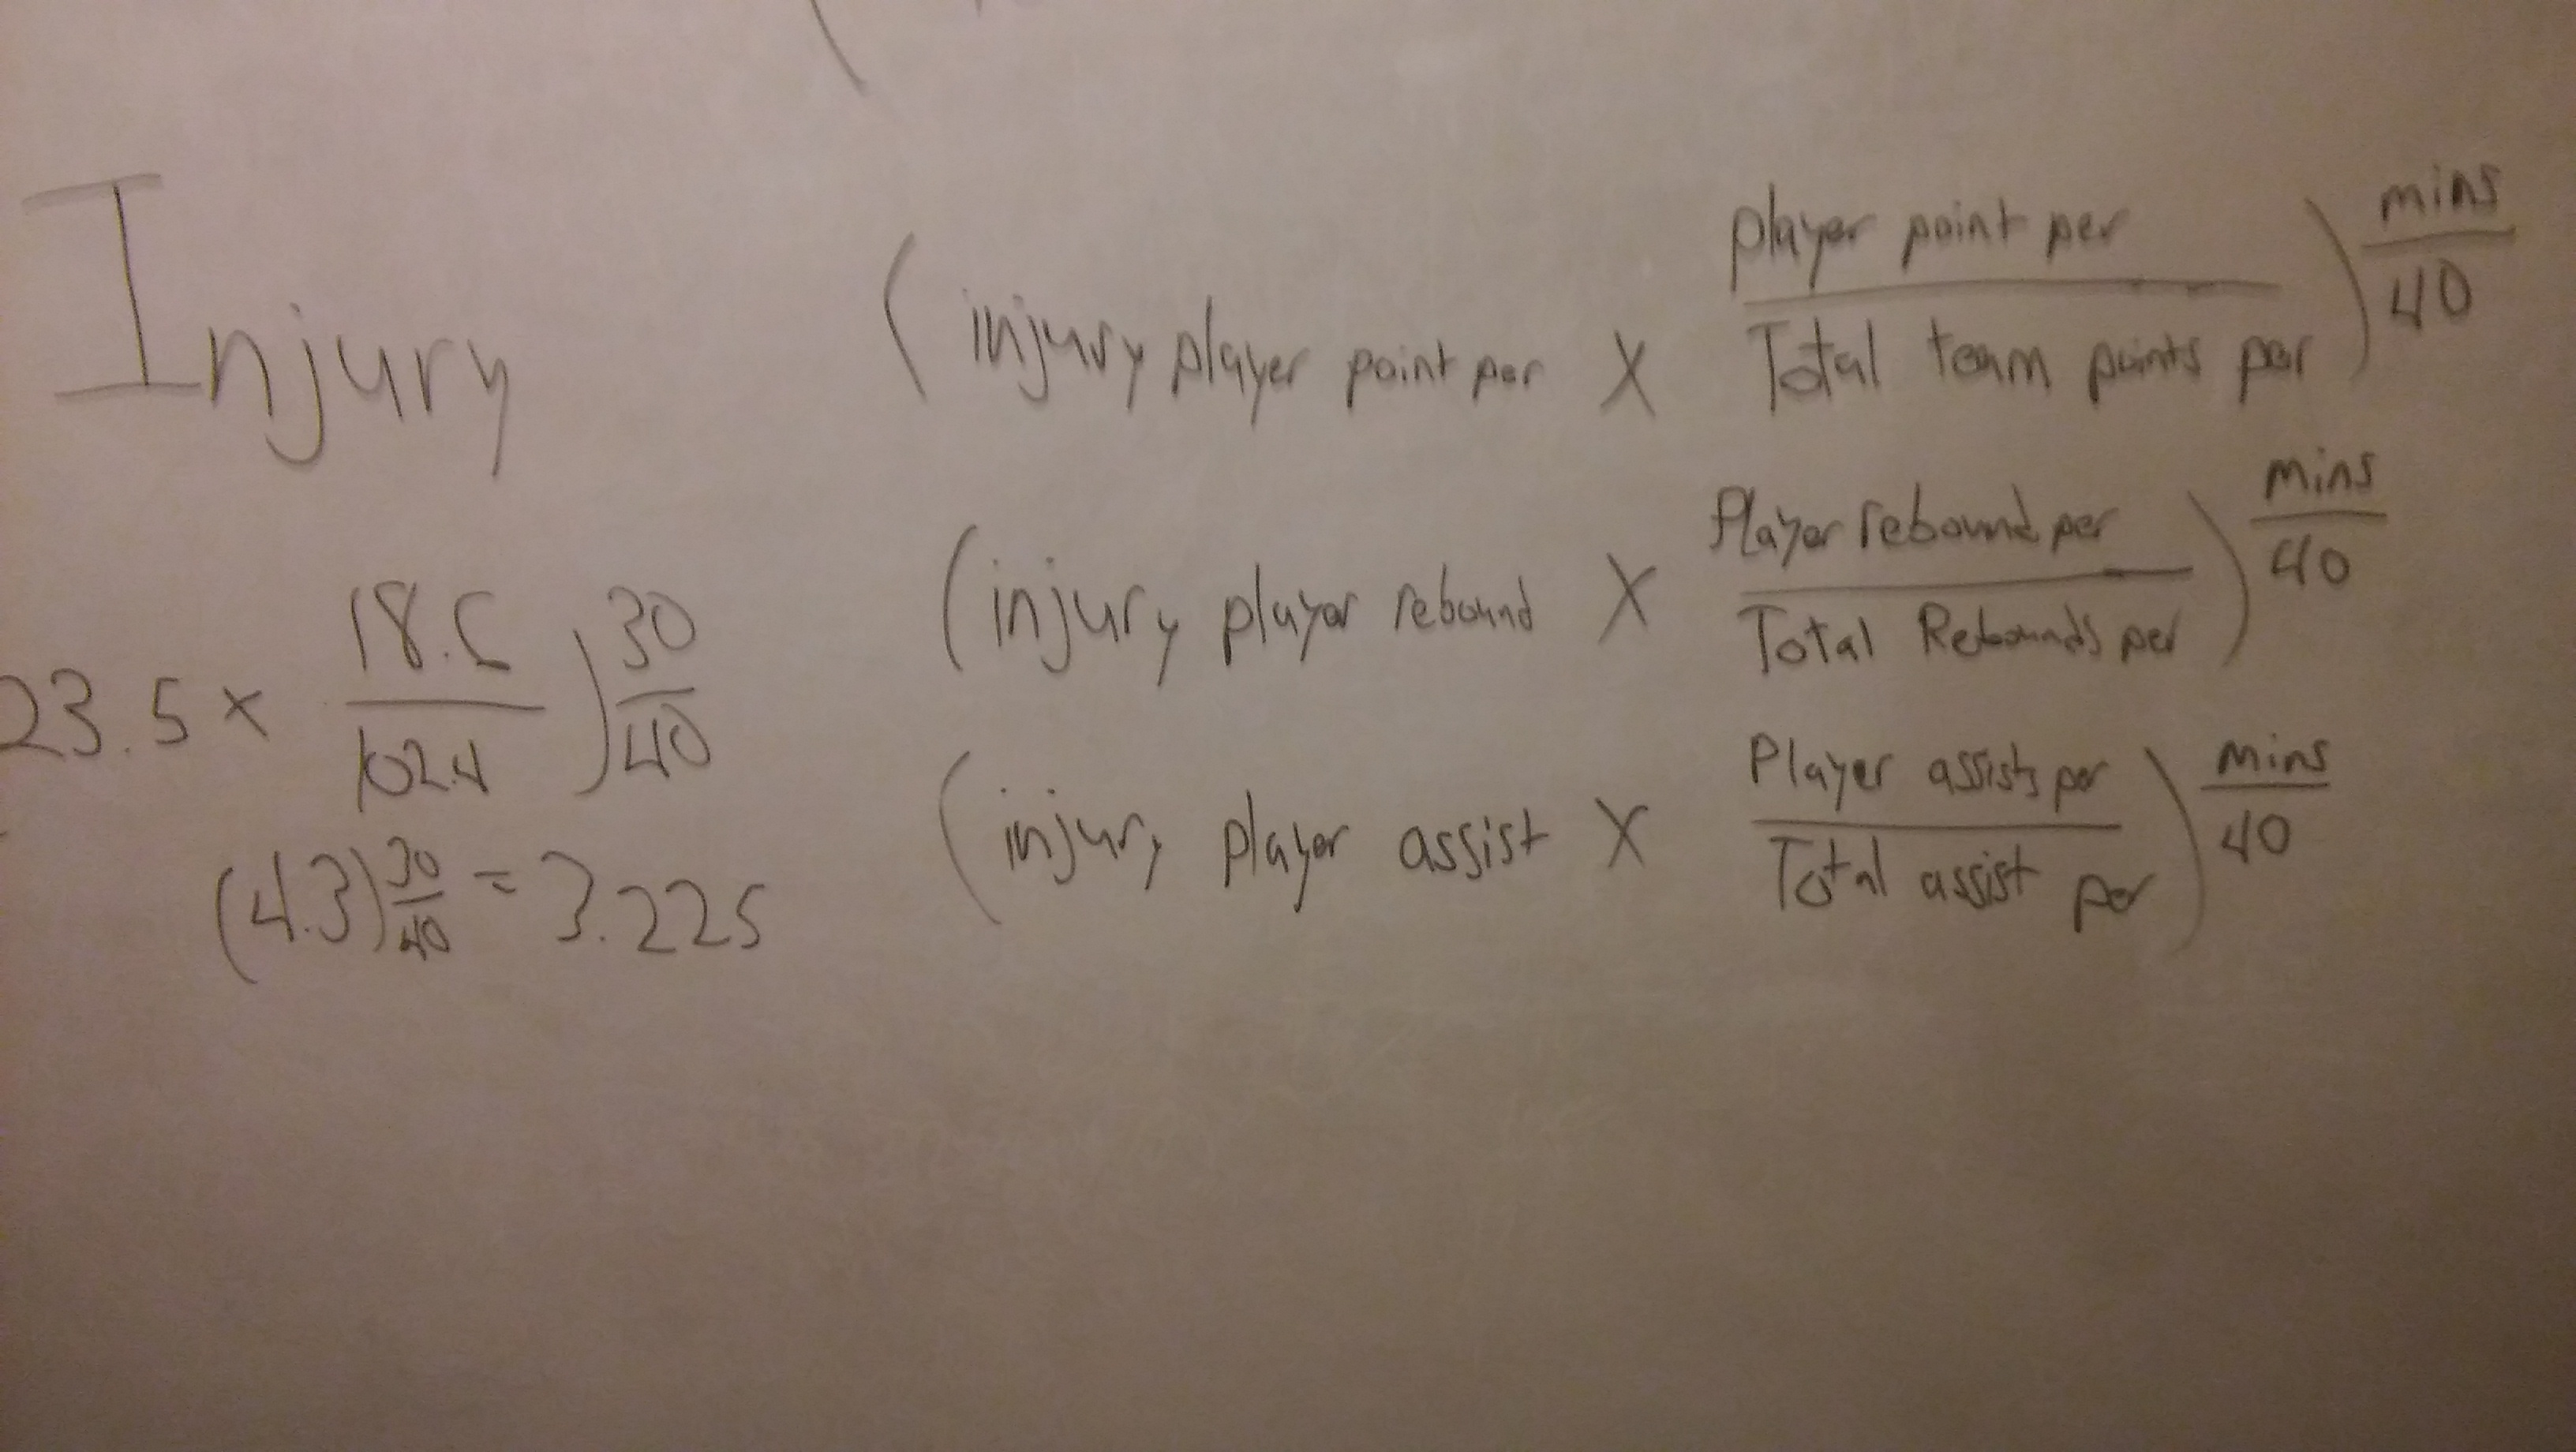 Injury
( injury player point per X player point per / Total team points per ) mins / 40
( injury player rebound X Player rebound per / Total Rebounds per ) mins / 40
( injury player assist X Player assists per / Total assist per ) mins / 40
23.5 x / 102.4 ) 30 / 40
(4.3) 30 / 40 = 3.225